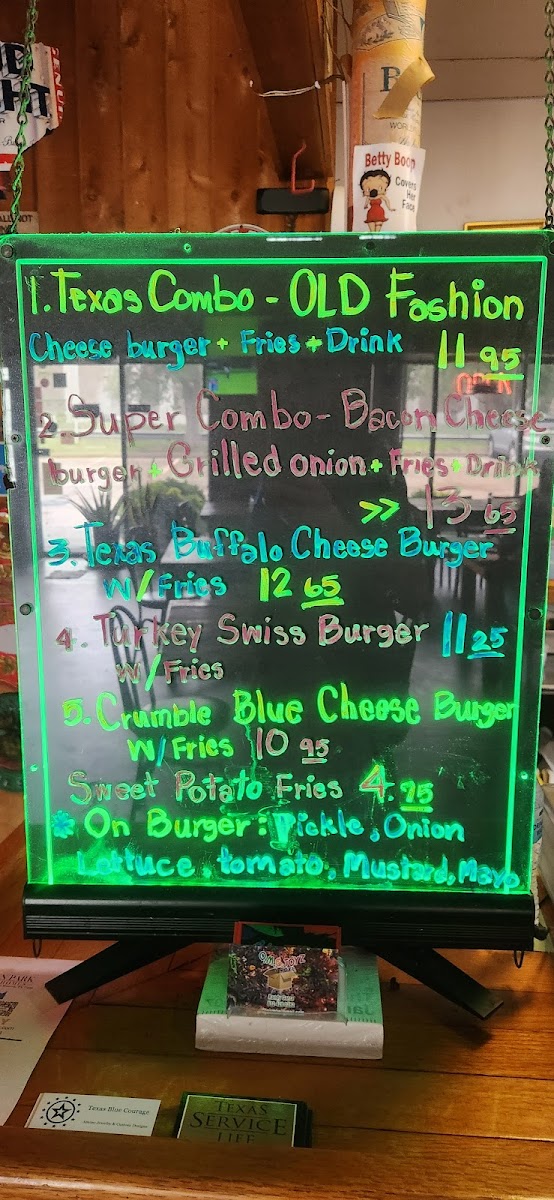 HT
Betty Boop
Covers
Her
Face
1. Texas Combo - OLD Fashion
Cheese burger + Fries + Drink 11 95
OPEN
2. Super Combo - Bacon Cheese
burger + Grilled onion + Fries + Drink
>> 13 65
3. Texas Buffalo Cheese Burger
W/Fries 12 65
4. Turkey Swiss Burger 11 25
W/Fries
5. Crumble Blue Cheese Burger
W/Fries 10 95
Sweet Potato Fries 4. 75
* On Burger: Pickle, Onion
Lettuce, tomato, Mustard, Mayo
PARK
Texas Blue Courage
TEXAS
SERVICE
LIFE